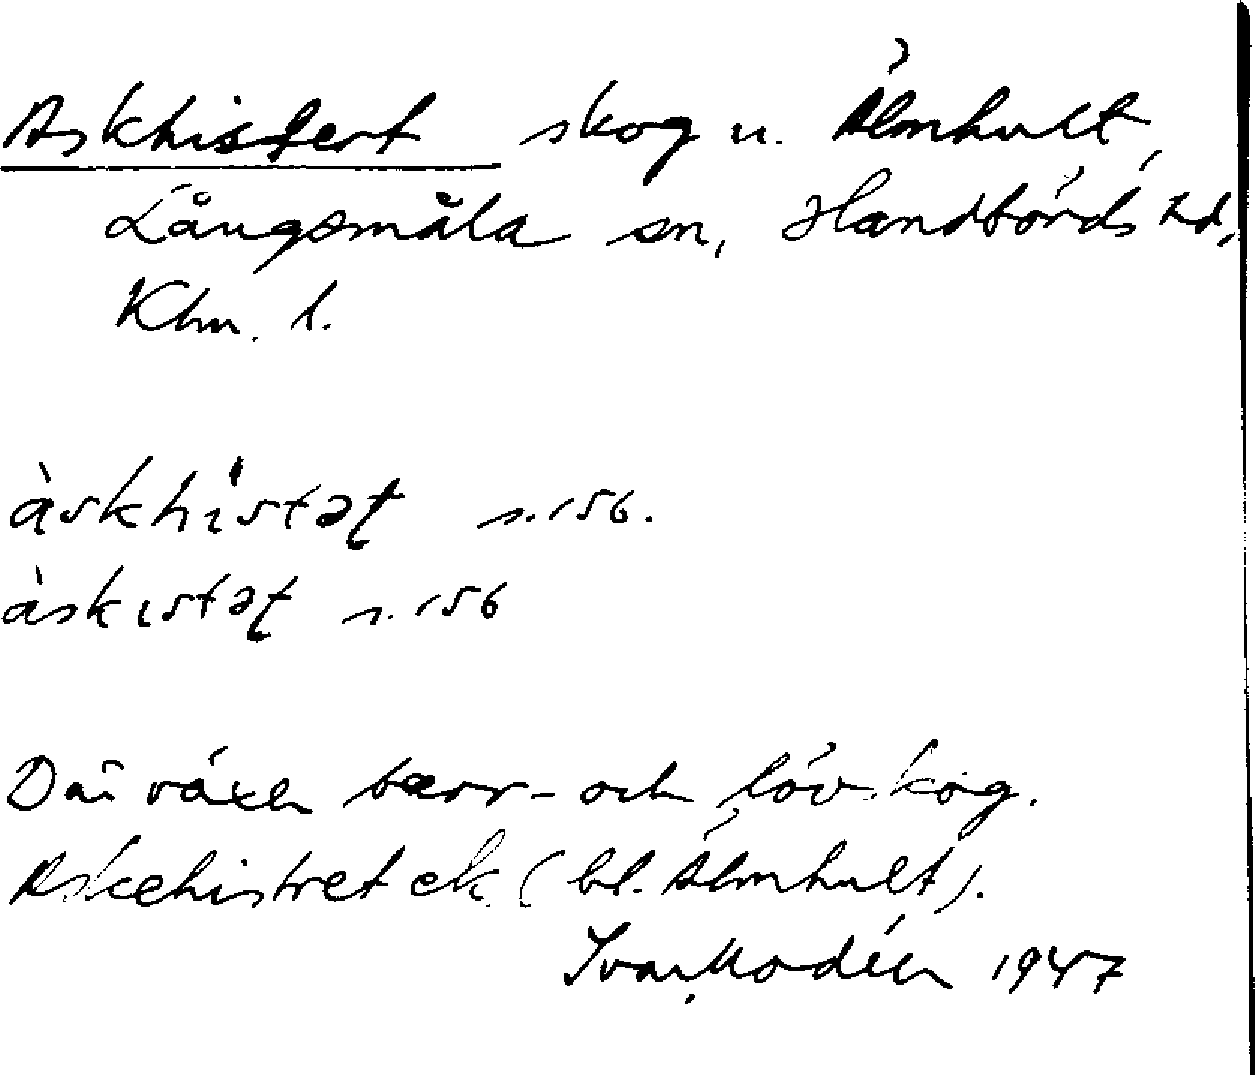 Askhistert skog u. Älmhult,
Långsmåla sn, Handbörds hd,
Klm. l.
àskhìstət s. 156.
àskıstət s. 156
Där växer barr- och lövskog.
Askehistret ek. (bl. Älmhult).
Ivar Modéer 1947